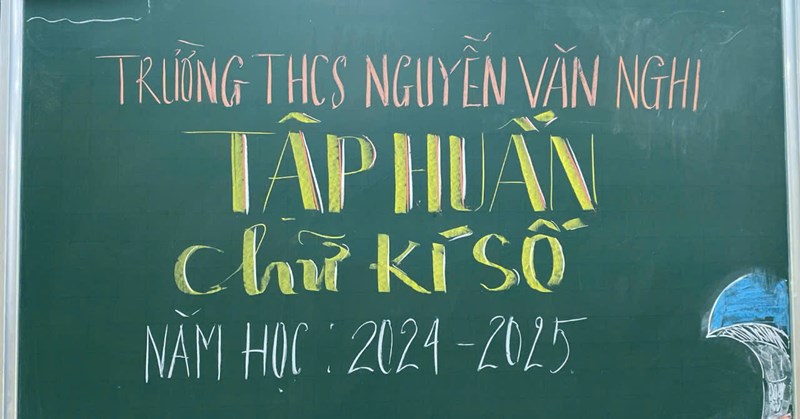 TRƯỜNG THCS NGUYỄN VĂN NGHI
TẬP HUẤN
Chữ KÍ SỐ
NĂM HỌC : 2024 - 2025